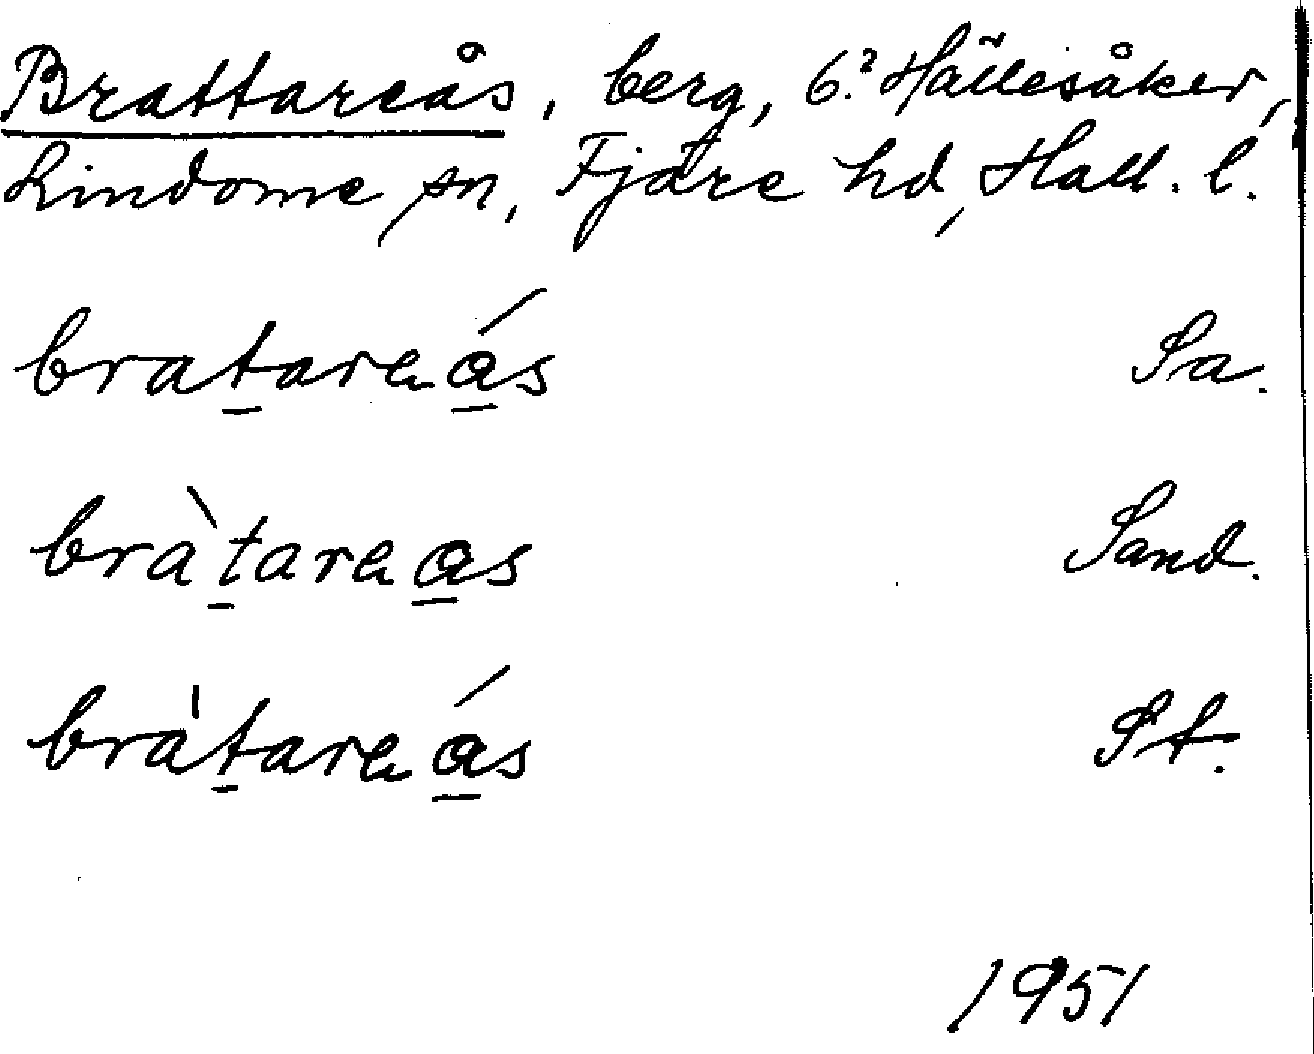 Brattareås, berg, 6? Hällesåker,
Lindome sn, Fjäre hd, Hall. l.
bratareås Sa.
bràtareas Sand.
bràtareås St.
1951